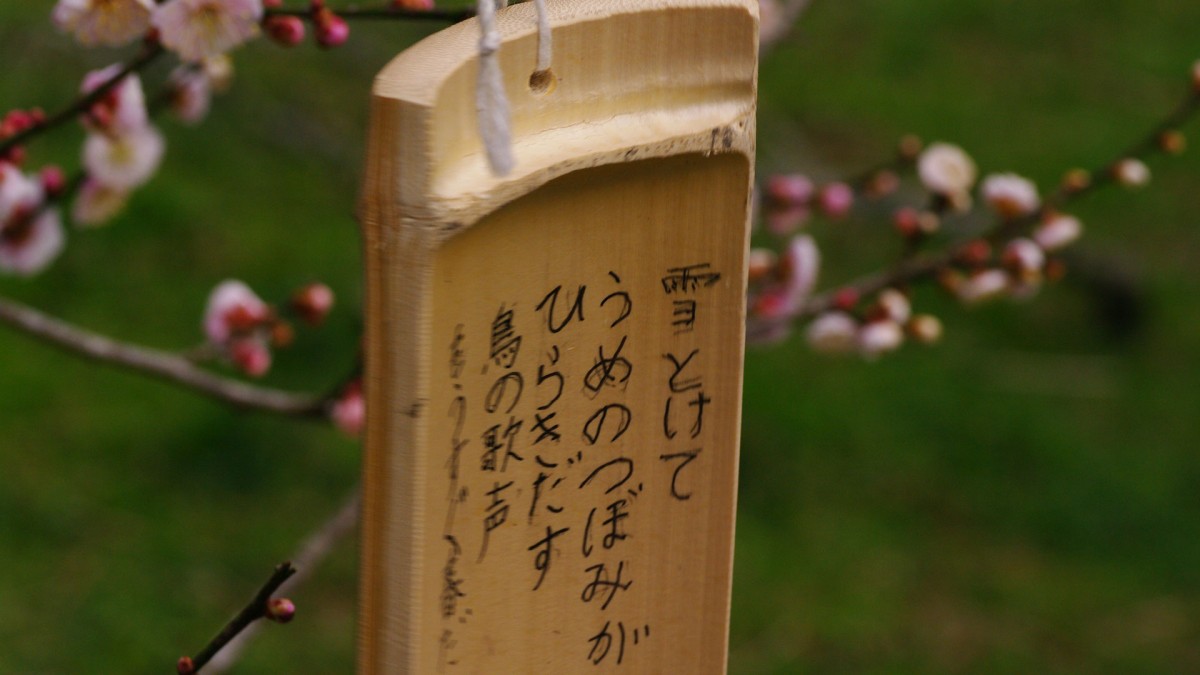 雪とけて
うめのつぼみが
ひらきだす
鳥の歌声